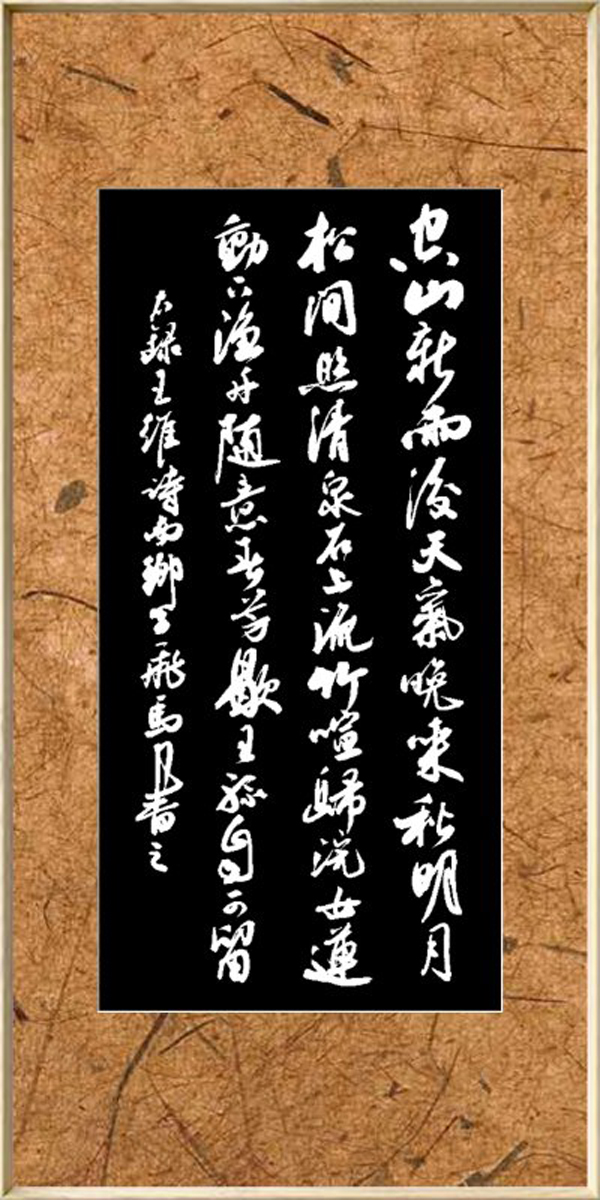 空山新雨後天氣晚来秋明月
松间照清泉石上流竹喧歸浣女蓮
動下漁舟随意春芳歇王孫自可留
右録王維詩 馬 書之